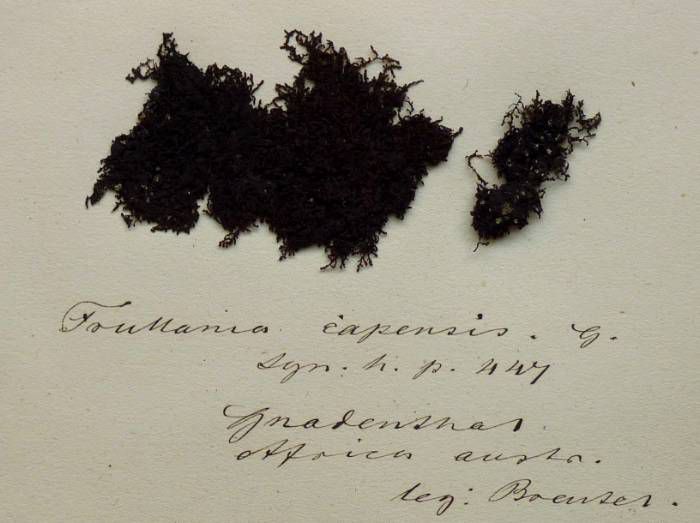 Frullania capensis. G.
Syn. h. p. 447
Gnadenthal
Africa austr.
leg: Breutel.